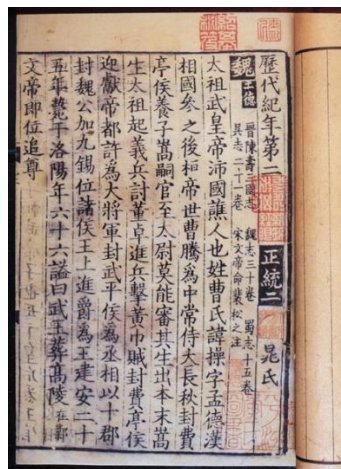 歷代紀年第一 正統二 晁氏
魏 土德
晉陳壽三國志 魏志三十卷 蜀志十五卷
吳志二十一卷 宋文帝命裴松之注
太祖武皇帝沛國譙人也姓曹氏諱操字孟德漢
相國參之後桓帝世曹騰為中常侍大長秋封費
亭侯養子嵩嗣官至太尉莫能審其生出本末嵩
生太祖起義兵討董卓進兵擊黃巾賊封費亭侯
迎獻帝都許為大將軍封武平侯為丞相以十郡
封魏公加九錫位諸侯王上進爵為王建安二十
五年薨于洛陽年六十六謚曰武王葬髙陵 在鄴
文帝即位追尊